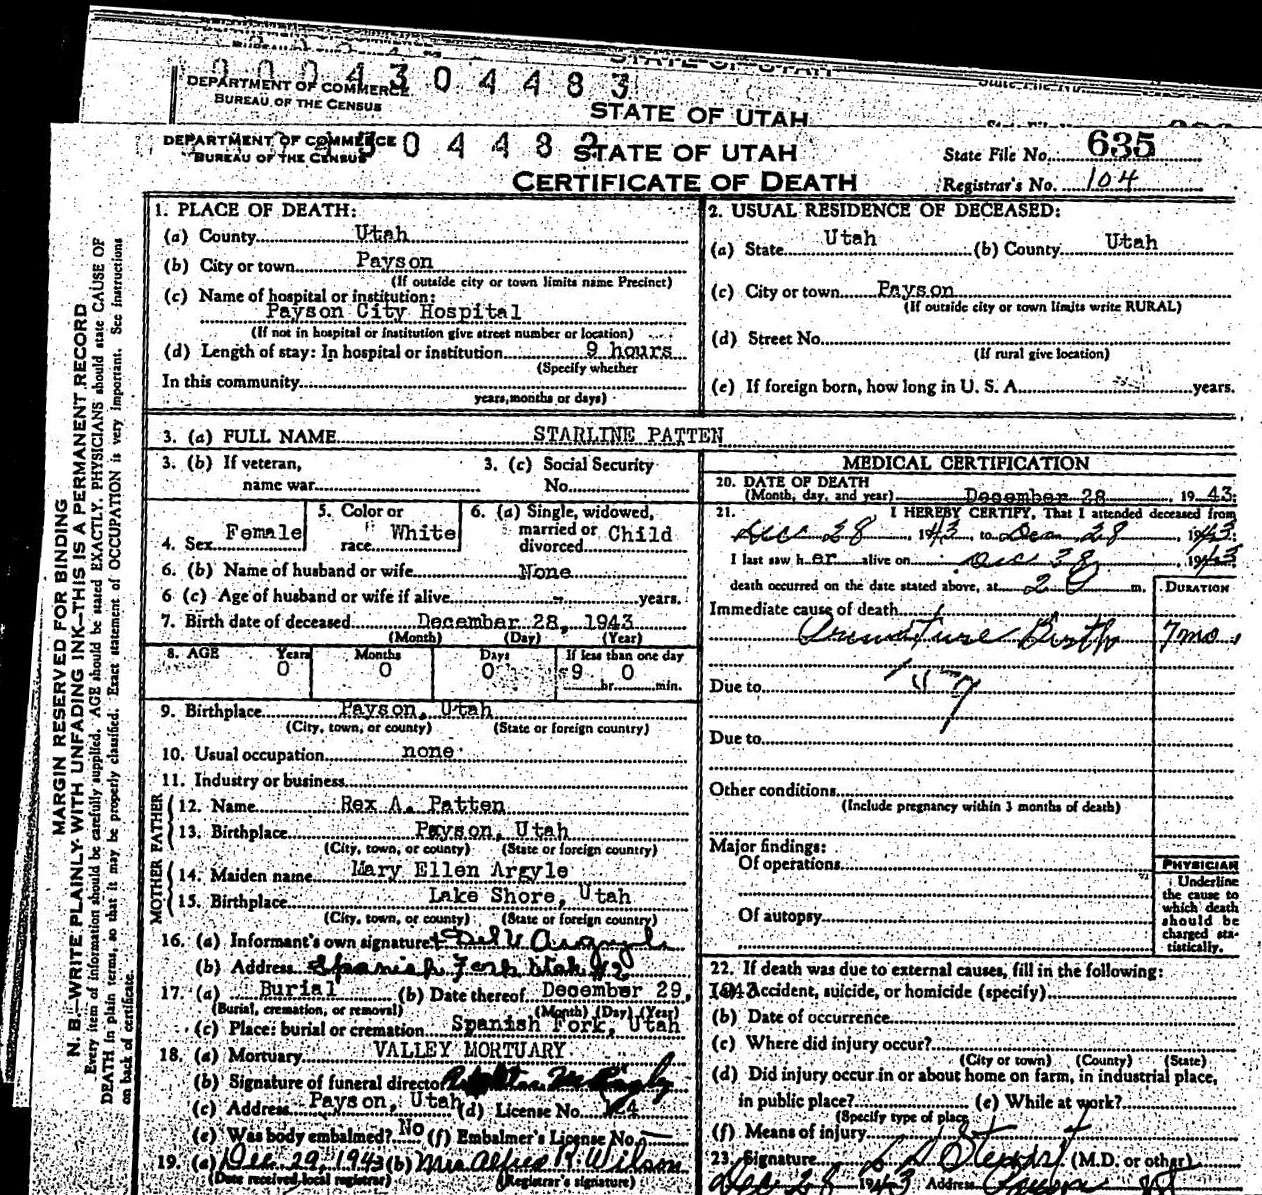 0004304483
STATE OF UTAH
DEPARTMENT OF COMMERCE
BUREAU OF THE CENSUS
STATE OF UTAH
DEPARTMENT OF COMMERCE
BUREAU OF THE CENSUS
0 4 4 8 2
STATE OF UTAH
CERTIFICATE OF DEATH
State File No. 635
Registrar's No. 104
MARGIN RESERVED FOR BINDING
N. B.—WRITE PLAINLY WITH UNFADING INK—THIS IS A PERMANENT RECORD
Every item of information should be carefully supplied. AGE should be stated EXACTLY. PHYSICIANS should state CAUSE OF
DEATH in plain terms, so that it may be properly classified. Exact statement of OCCUPATION is very important. See instructions
on back of certificate.
1. PLACE OF DEATH:
(a) County Utah
(b) City or town Payson
(If outside city or town limits name Precinct)
(c) Name of hospital or institution:
Payson City Hospital
(If not in hospital or institution give street number or location)
(d) Length of stay: In hospital or institution 9 hours
(Specify whether
In this community
years, months or days)
2. USUAL RESIDENCE OF DECEASED:
(a) State Utah (b) County Utah
(c) City or town Payson
(If outside city or town limits write RURAL)
(d) Street No.
(If rural give location)
(e) If foreign born, how long in U. S. A. years.
3. (a) FULL NAME STARLINE PATTEN
3. (b) If veteran, 3. (c) Social Security
name war No.
4. Sex Female 5. Color or race White 6. (a) Single, widowed, married or divorced Child
6. (b) Name of husband or wife None
6 (c) Age of husband or wife if alive - years.
7. Birth date of deceased December 28, 1943
(Month) (Day) (Year)
8. AGE Years Months Days If less than one day
0 0 0 9 0
hr. min.
9. Birthplace Payson, Utah
(City, town, or county) (State or foreign country)
10. Usual occupation none
11. Industry or business
FATHER
12. Name Rex A. Patten
13. Birthplace Payson, Utah
(City, town, or county) (State or foreign country)
MOTHER
14. Maiden name Mary Ellen Argyle
15. Birthplace Lake Shore, Utah
(City, town, or county) (State or foreign country)
16. (a) Informant's own signature Del V Argyle
(b) Address Spanish Fork Utah #2
17. (a) Burial (b) Date thereof December 29, 1943
(Burial, cremation, or removal) (Month) (Day) (Year)
(c) Place: burial or cremation Spanish Fork, Utah
18. (a) Mortuary VALLEY MORTUARY
(b) Signature of funeral director
(c) Address Payson, Utah (d) License No.
(e) Was body embalmed? No (f) Embalmer's License No. —
19. (a) Dec. 29, 1943 (b) Mrs Alfred R. Wilson
(Date received local registrar) (Registrar's signature)
MEDICAL CERTIFICATION
20. DATE OF DEATH
(Month, day, and year) December 28, 1943.
21. I HEREBY CERTIFY, That I attended deceased from
Dec 28, 1943 to Dec 28, 1943.
I last saw her alive on Dec 28, 1943
death occurred on the date stated above, at m.
DURATION
Immediate cause of death
Premature Birth 7 mo.
Due to
Due to
Other conditions
(Include pregnancy within 3 months of death)
Major findings:
Of operations
Of autopsy
PHYSICIAN
Underline
the cause to
which death
should be
charged sta-
tistically.
22. If death was due to external causes, fill in the following:
(a) Accident, suicide, or homicide (specify)
(b) Date of occurrence
(c) Where did injury occur?
(City or town) (County) (State)
(d) Did injury occur in or about home on farm, in industrial place,
in public place? (e) While at work?
(Specify type of place
(f) Means of injury
23. Signature (M.D. or other)
Dec 28 1943 Address Payson